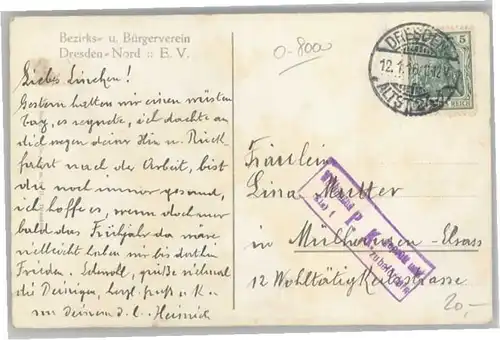 Bezirks- u. Bürgerverein
Dresden-Nord :: E. V.
0-8000
DRESDEN
12.1.16. 11-12 V.
ALTST.
5
REICH
Liebes Linchen!
Gestern hatten wir einen wüsten
Tag, es regnete, ich dachte an
dich wegen deiner Hin u. Rück-
fahrt nach der Arbeit, bist
du noch immer gesund,
ich hoffe es, wenn doch nur
bald das Frühjahr da wäre
vielleicht haben wir bis dorthin
Frieden. Schnall, grüße vielmal
die Deinigen, herzl. Gruß u. K.
von deinem d. l. Heinrich
Fräulein
Lina Mutter
in Mülhausen-Elsass
12 Wohltätigkeitsstrasse
P. K.
zu befördern
20,-